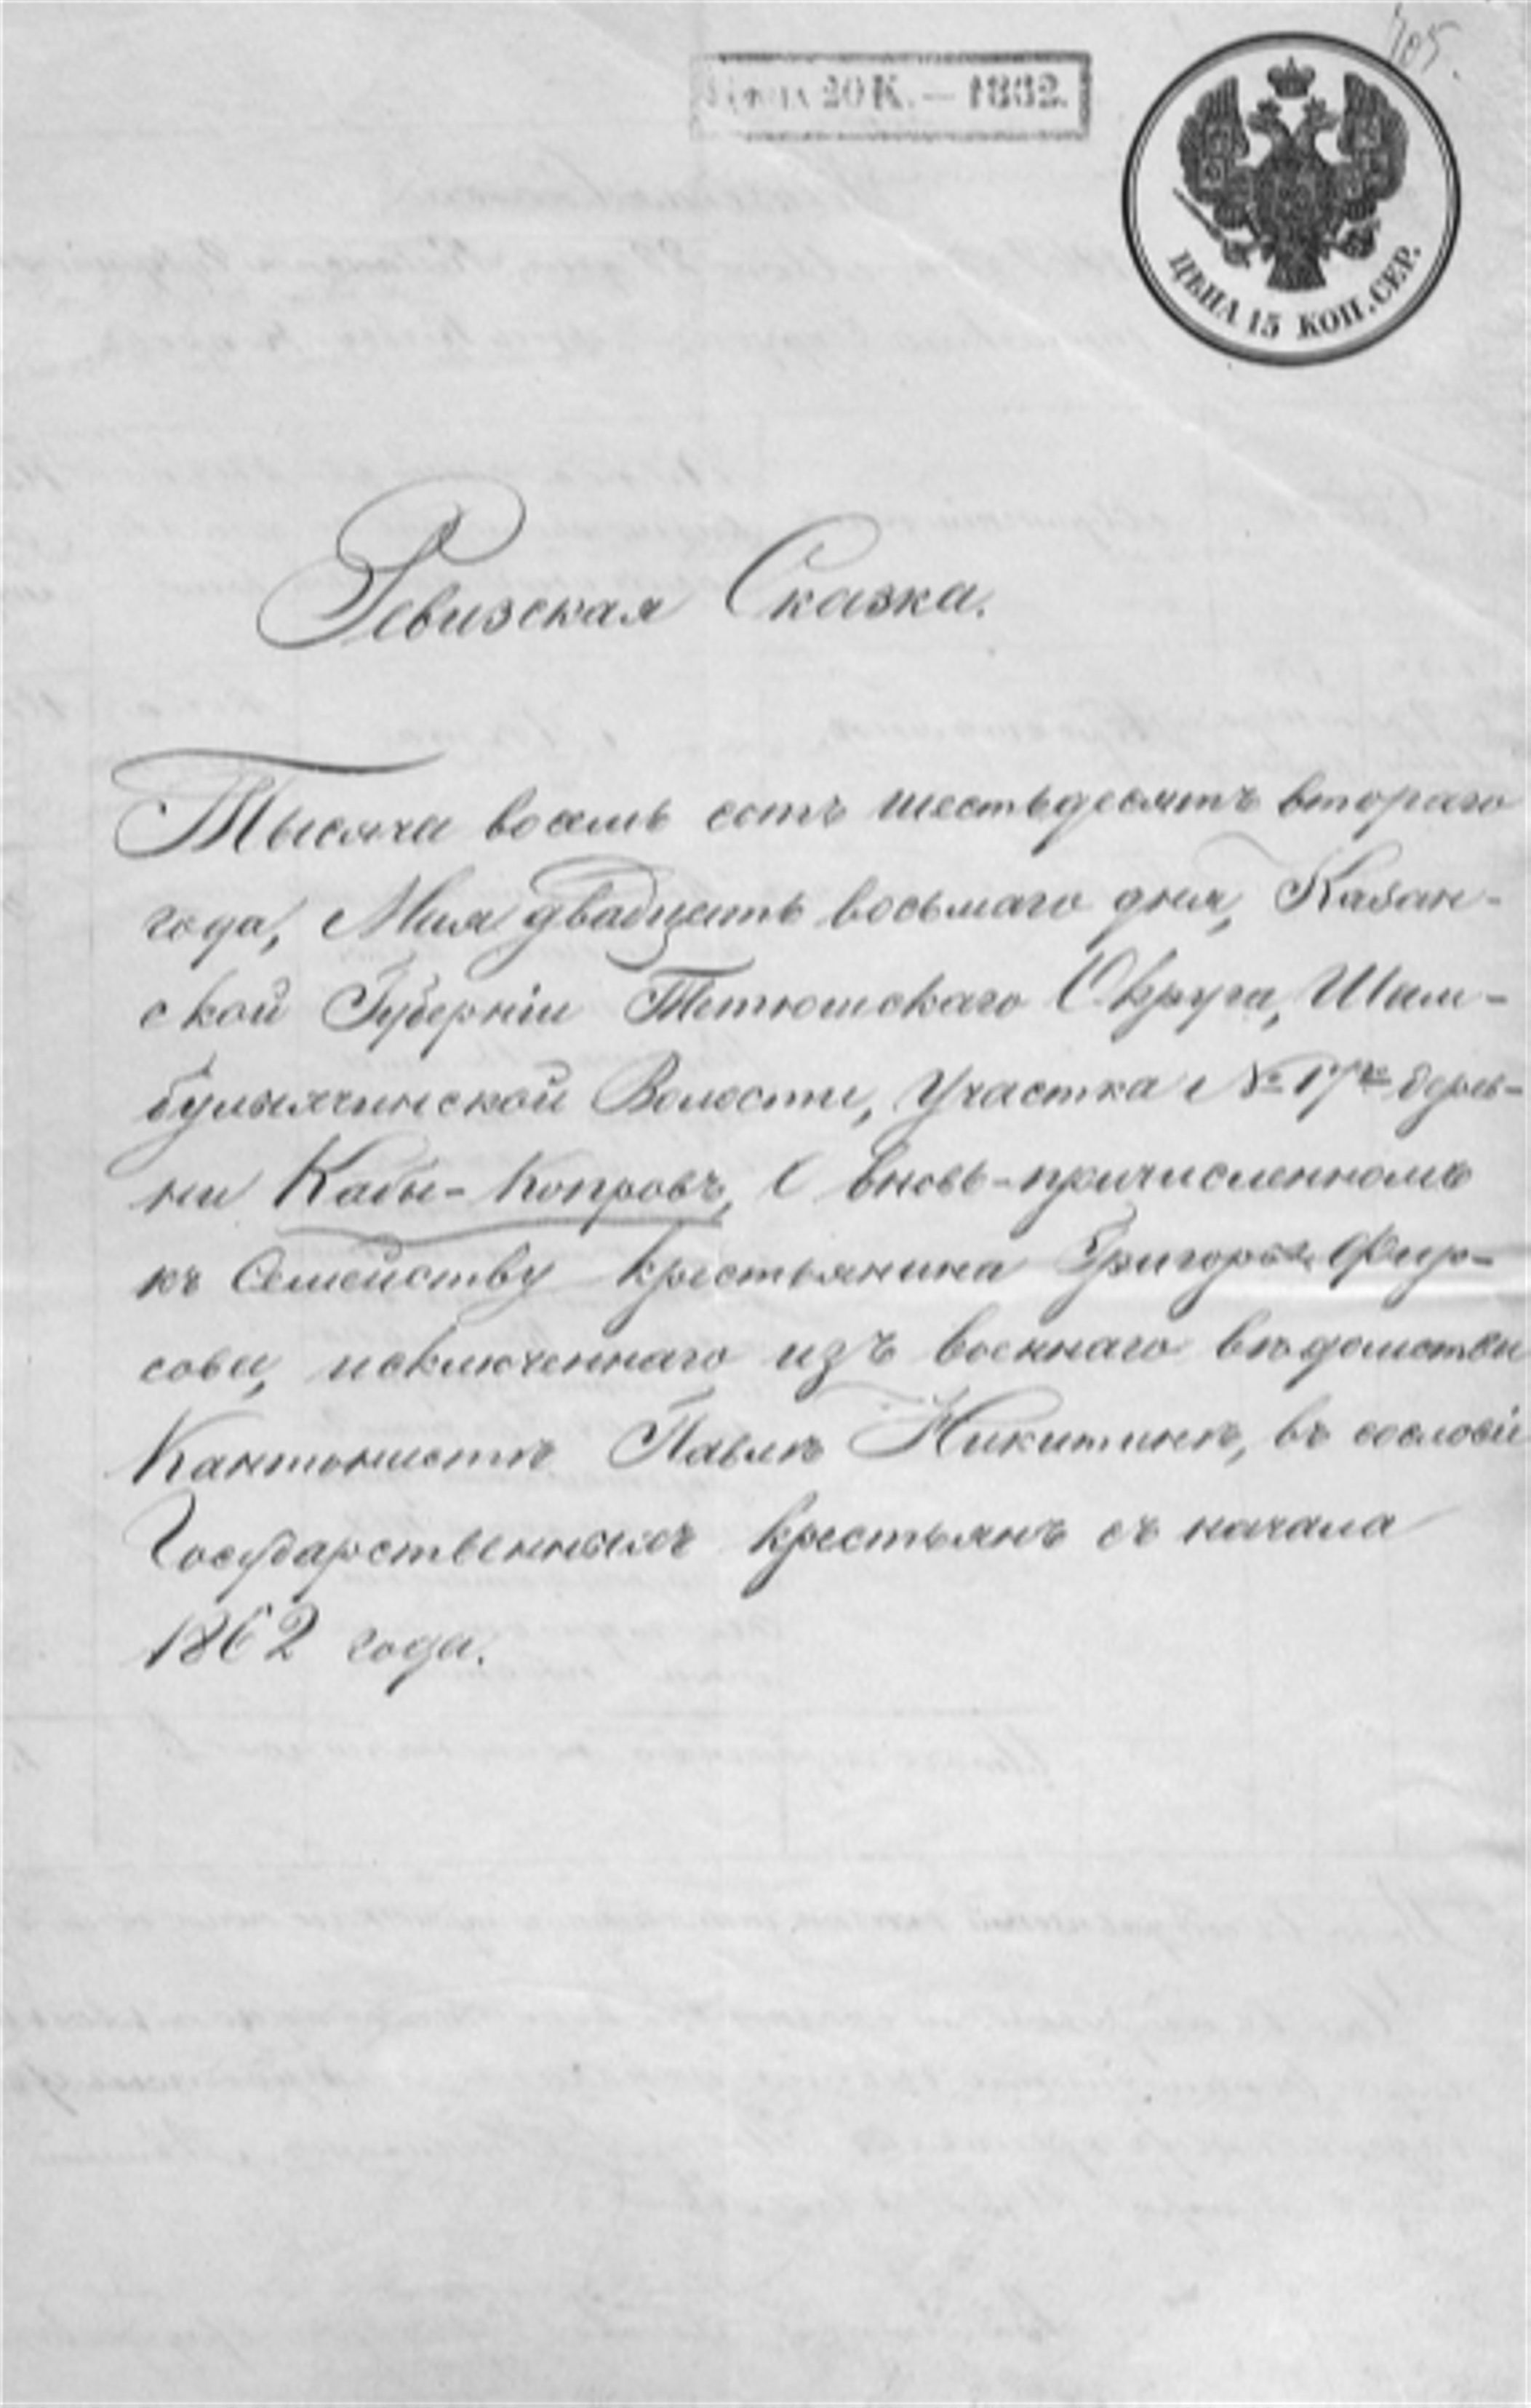 705.
Цѣна 20 К. — 1862.
ЦѢНА 15 КОП. СЕР.
Ревизская Сказка.
Тысяча восемь сотъ шестьдесятъ втораго
года, Мая двадцать восьмаго дня, Казан-
ской Губерніи Тетюшскаго Округа, Шам-
булыхчинской Волости, Участка № 17го дерев-
ни Кабы-Копровъ, О вновь-причисленномъ
къ Семейству Крестьянина Григорья Фир-
сова, исключеннаго изъ военнаго вѣдомства
Кантонистѣ Павлѣ Никитинѣ, въ сословіи
Государственныхъ Крестьянъ съ начала
1862 года.